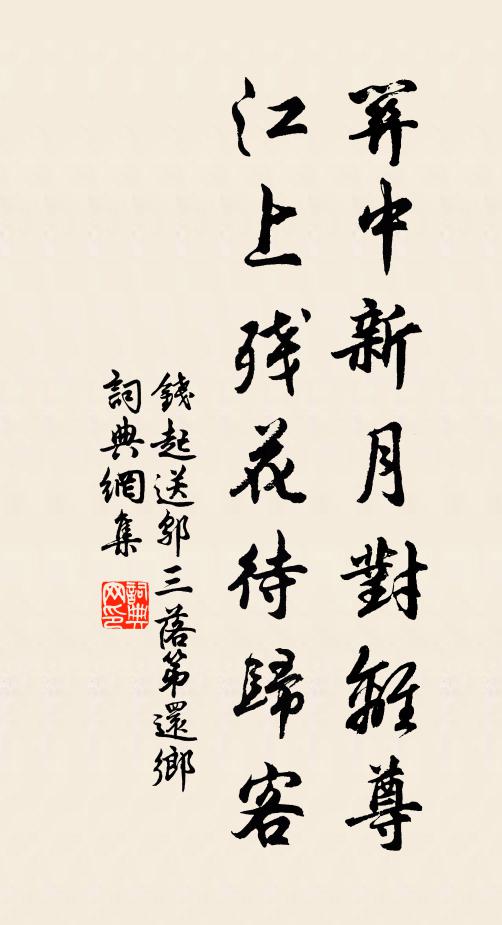 關中新月對離尊
江上残花待歸客
錢起送鄔三落第還鄉
詞典網集
詞典网印